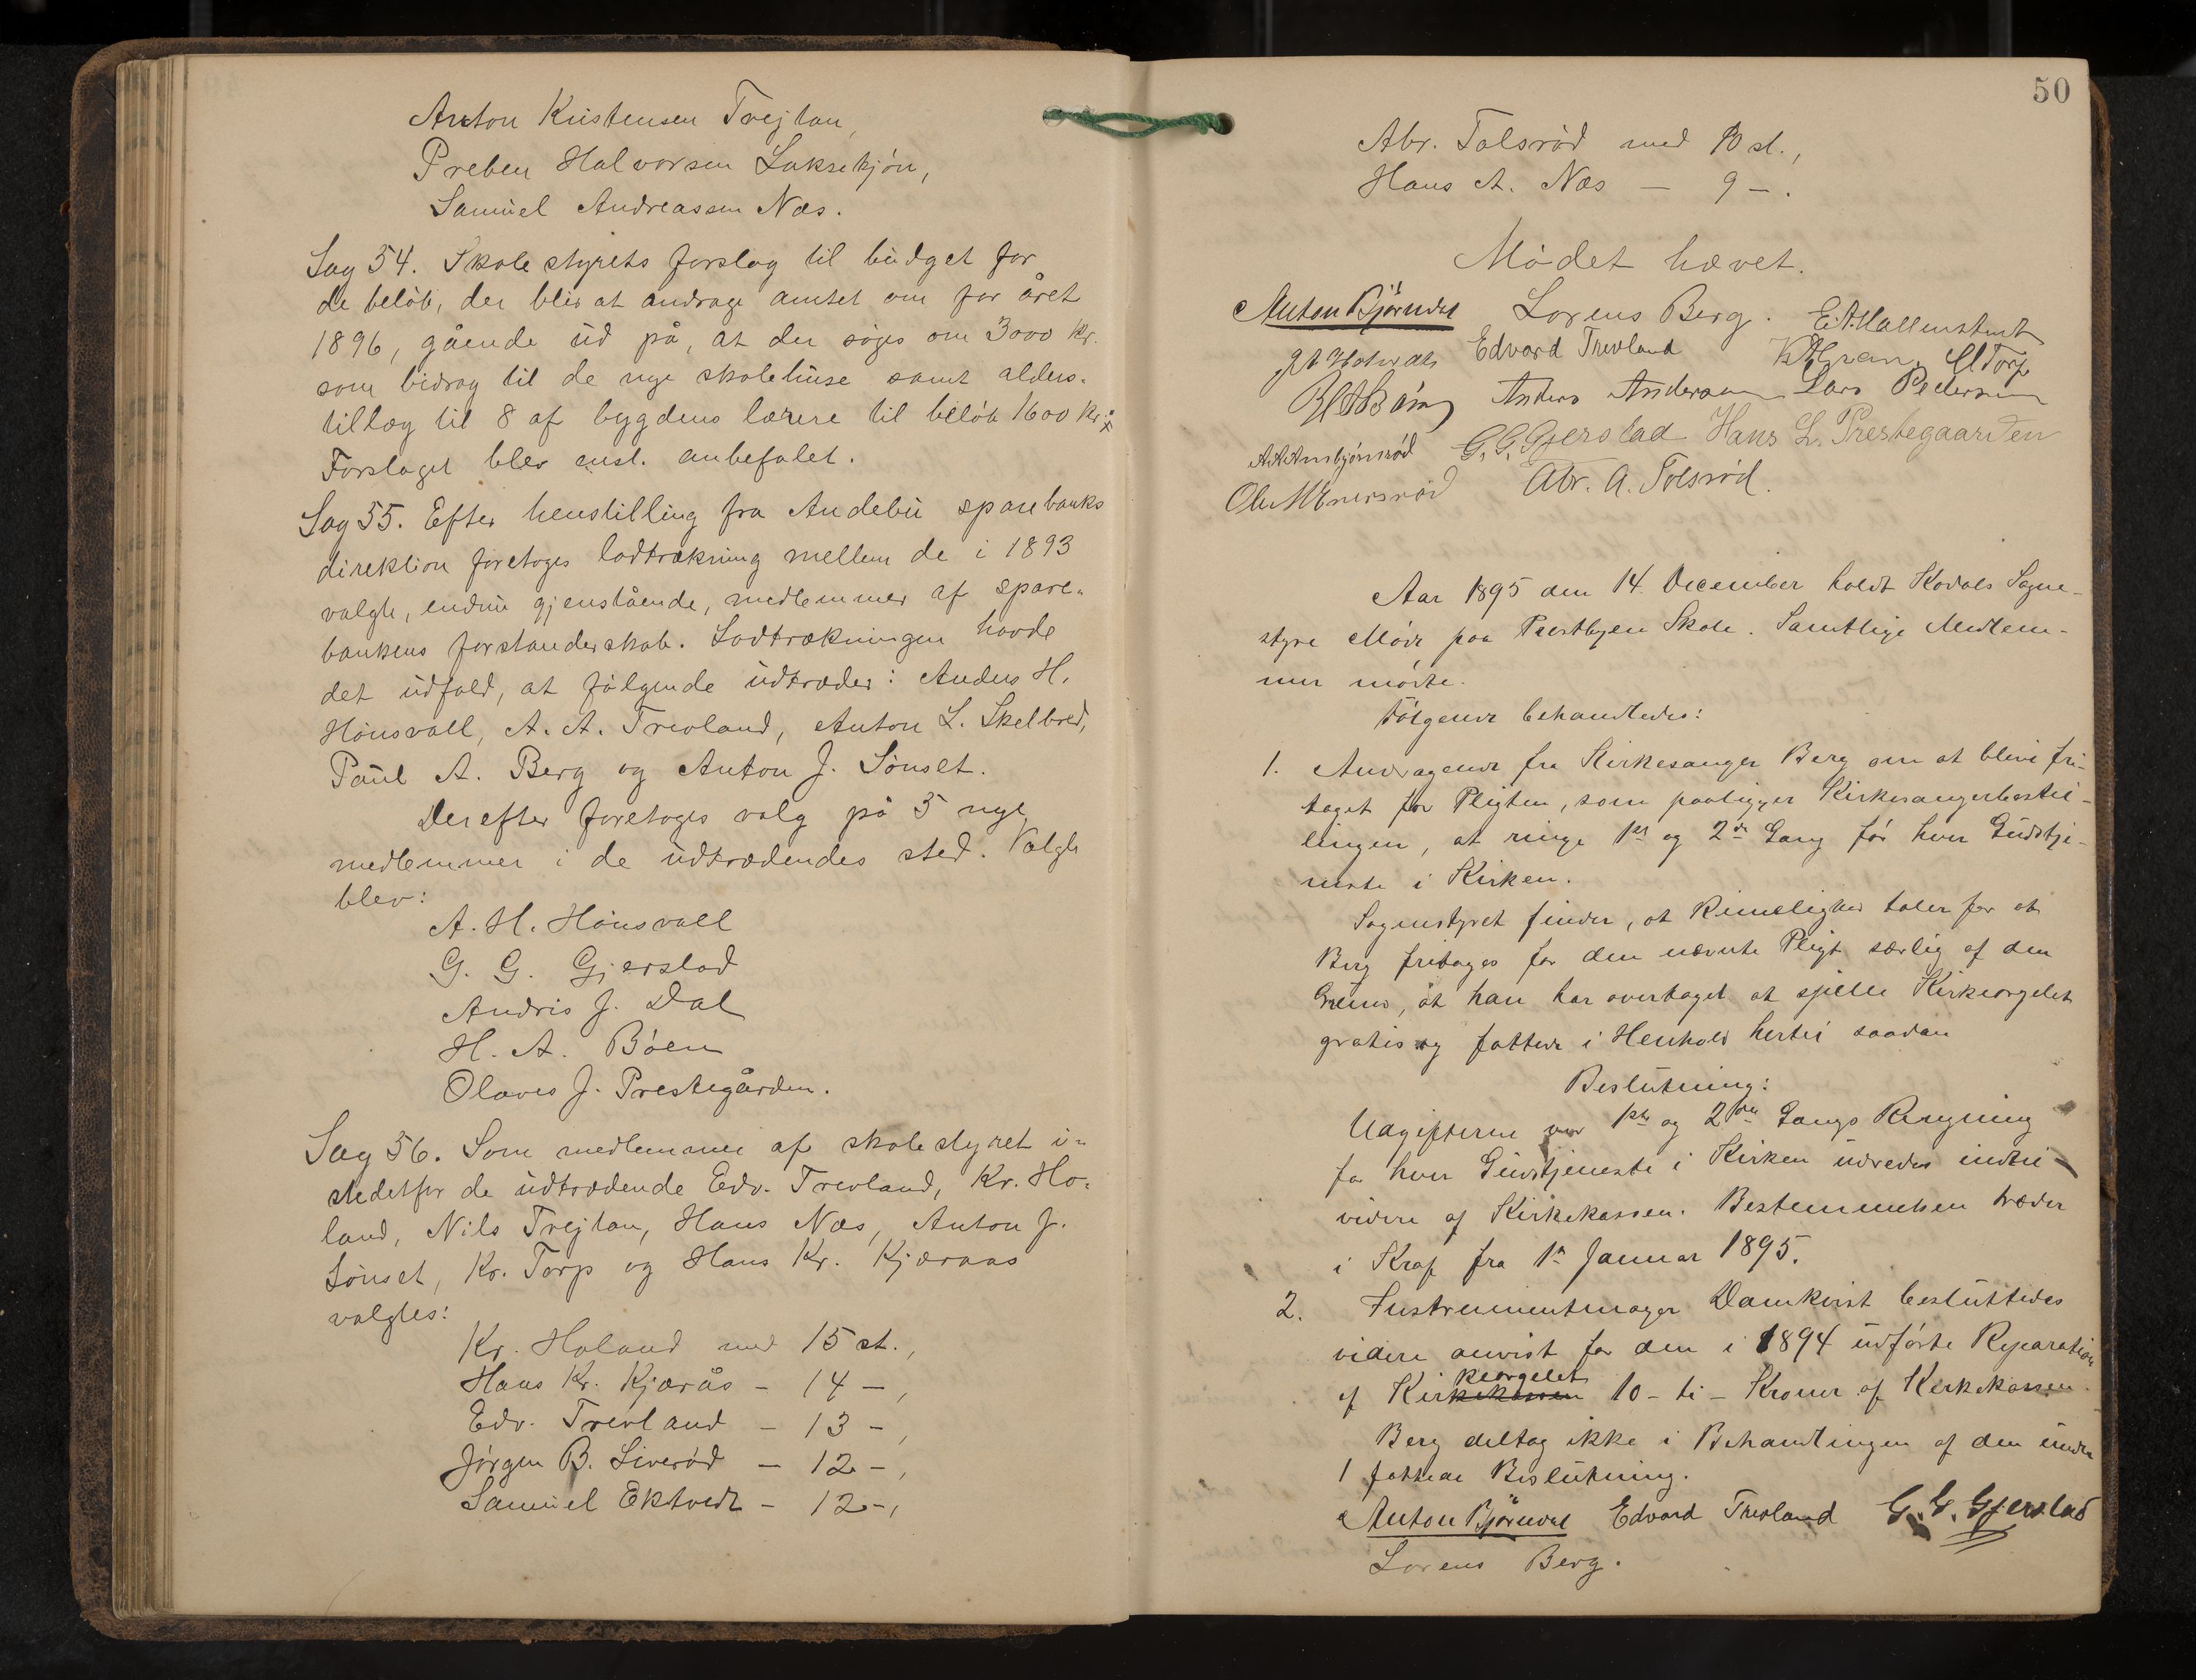 Anton Kristensen Trejtan,
Preben Halvorsen Laksekjøn,
Samuel Andreassen Næs.
Sag 54. Skolestyrets forslag til budget for
de beløb, der blir at andrage amtet om for året
1896, gående ud på, at der søges om 3000 kr.
som bidrag til de nye skolehuse samt alders-
tillæg til 8 af bygdens lærere til beløb 1600 kr.
Forslaget blev enst. anbefalet.
Sag 55. Efter henstilling fra Andebu sparebanks
direktion foretoges lodtrækning mellem de i 1893
valgte, endnu gjenstående, medlemmer af spare-
bankens forstanderskab. Lodtrækningen havde
det udfald, at følgende udtræder: Anders H.
Hønsvall, A. A. Trevland, Anton L. Skelbred,
Paul A. Berg og Anton J. Sønset.
Derefter foretoges valg på 5 nye
medlemmer i de udtrædendes sted. Valgte
blev:
A. H. Hønsvall
G. G. Gjerstad
Andris J. Dal
H. A. Bøen
Olaves J. Prestegården.
Sag 56. Som medlemmer af skolestyret i-
stedetfor de udtrædende Edv. Trevland, Kr. Ho-
land, Nils Trejtan, Hans Næs, Anton J.
Sønset, Kr. Torp og Hans Kr. Kjæraas
valgtes:
Kr. Holand med 15 st.,
Hans Kr. Kjærås - 14 -,
Edv. Trevland - 13 -,
Jørgen B. Liverød - 12 -,
Samuel Ektvedt - 12 -,
50
Abr. Tolsrød med 10 st.,
Hans A. Næs - 9 -.
Mødet hævet.
Anton Bjørndal Lorens Berg. E. A. Hallenstvet
Edvard Trevland K. Torp
Anders Andersen Lars Pedersen
A. A. Ambjørnrød G. G. Gjerstad Hans L. Prestegaarden
Ole M Enersrød Abr. A. Tolsrød.
Aar 1895 den 14. December holdt Kodals Sogne-
styre Møde paa Prestbyen Skole. Samtlige Medlem-
mer mødte.
Følgende behandledes:
1. Andragende fra Kirkesanger Berg om at blive fri-
taget for Pligten, som paaligger Kirkesangerbestil-
lingen, at ringe 1ste og 2den Gang før hver Gudstje-
neste i Kirken.
Sognestyret finder, at Rimelighed taler for at
Berg fritages for den nævnte Pligt særlig af den
Grund, at han har overtaget at spille Kirkeorgelet
gratis og fattede i Henhold hertil saadan
Beslutning:
Udgifterne ved 1ste og 2den Gangs Ringning
før hver Gudstjeneste i Kirken udredes indtil
videre af Kirkekassen. Bestemmelsen træder
i Kraf fra 1ste Januar 1895.
2. Instrumentmager Damkvist besluttedes
videre anvist for den i 1894 udførte Reparation
keorgelet
af Kirkekassen 10 - ti - Kroner af Kirkekassen.
Berg deltog ikke i Behandlingen af den under
1 fattede Beslutning.
Anton Bjørndal Edvard Trevland G. G. Gjerstad
Lorens Berg.